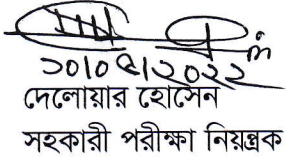 ২০/০৫/২০২২
দেলোয়ার হোসেন
সহকারী পরীক্ষা নিয়ন্ত্রক